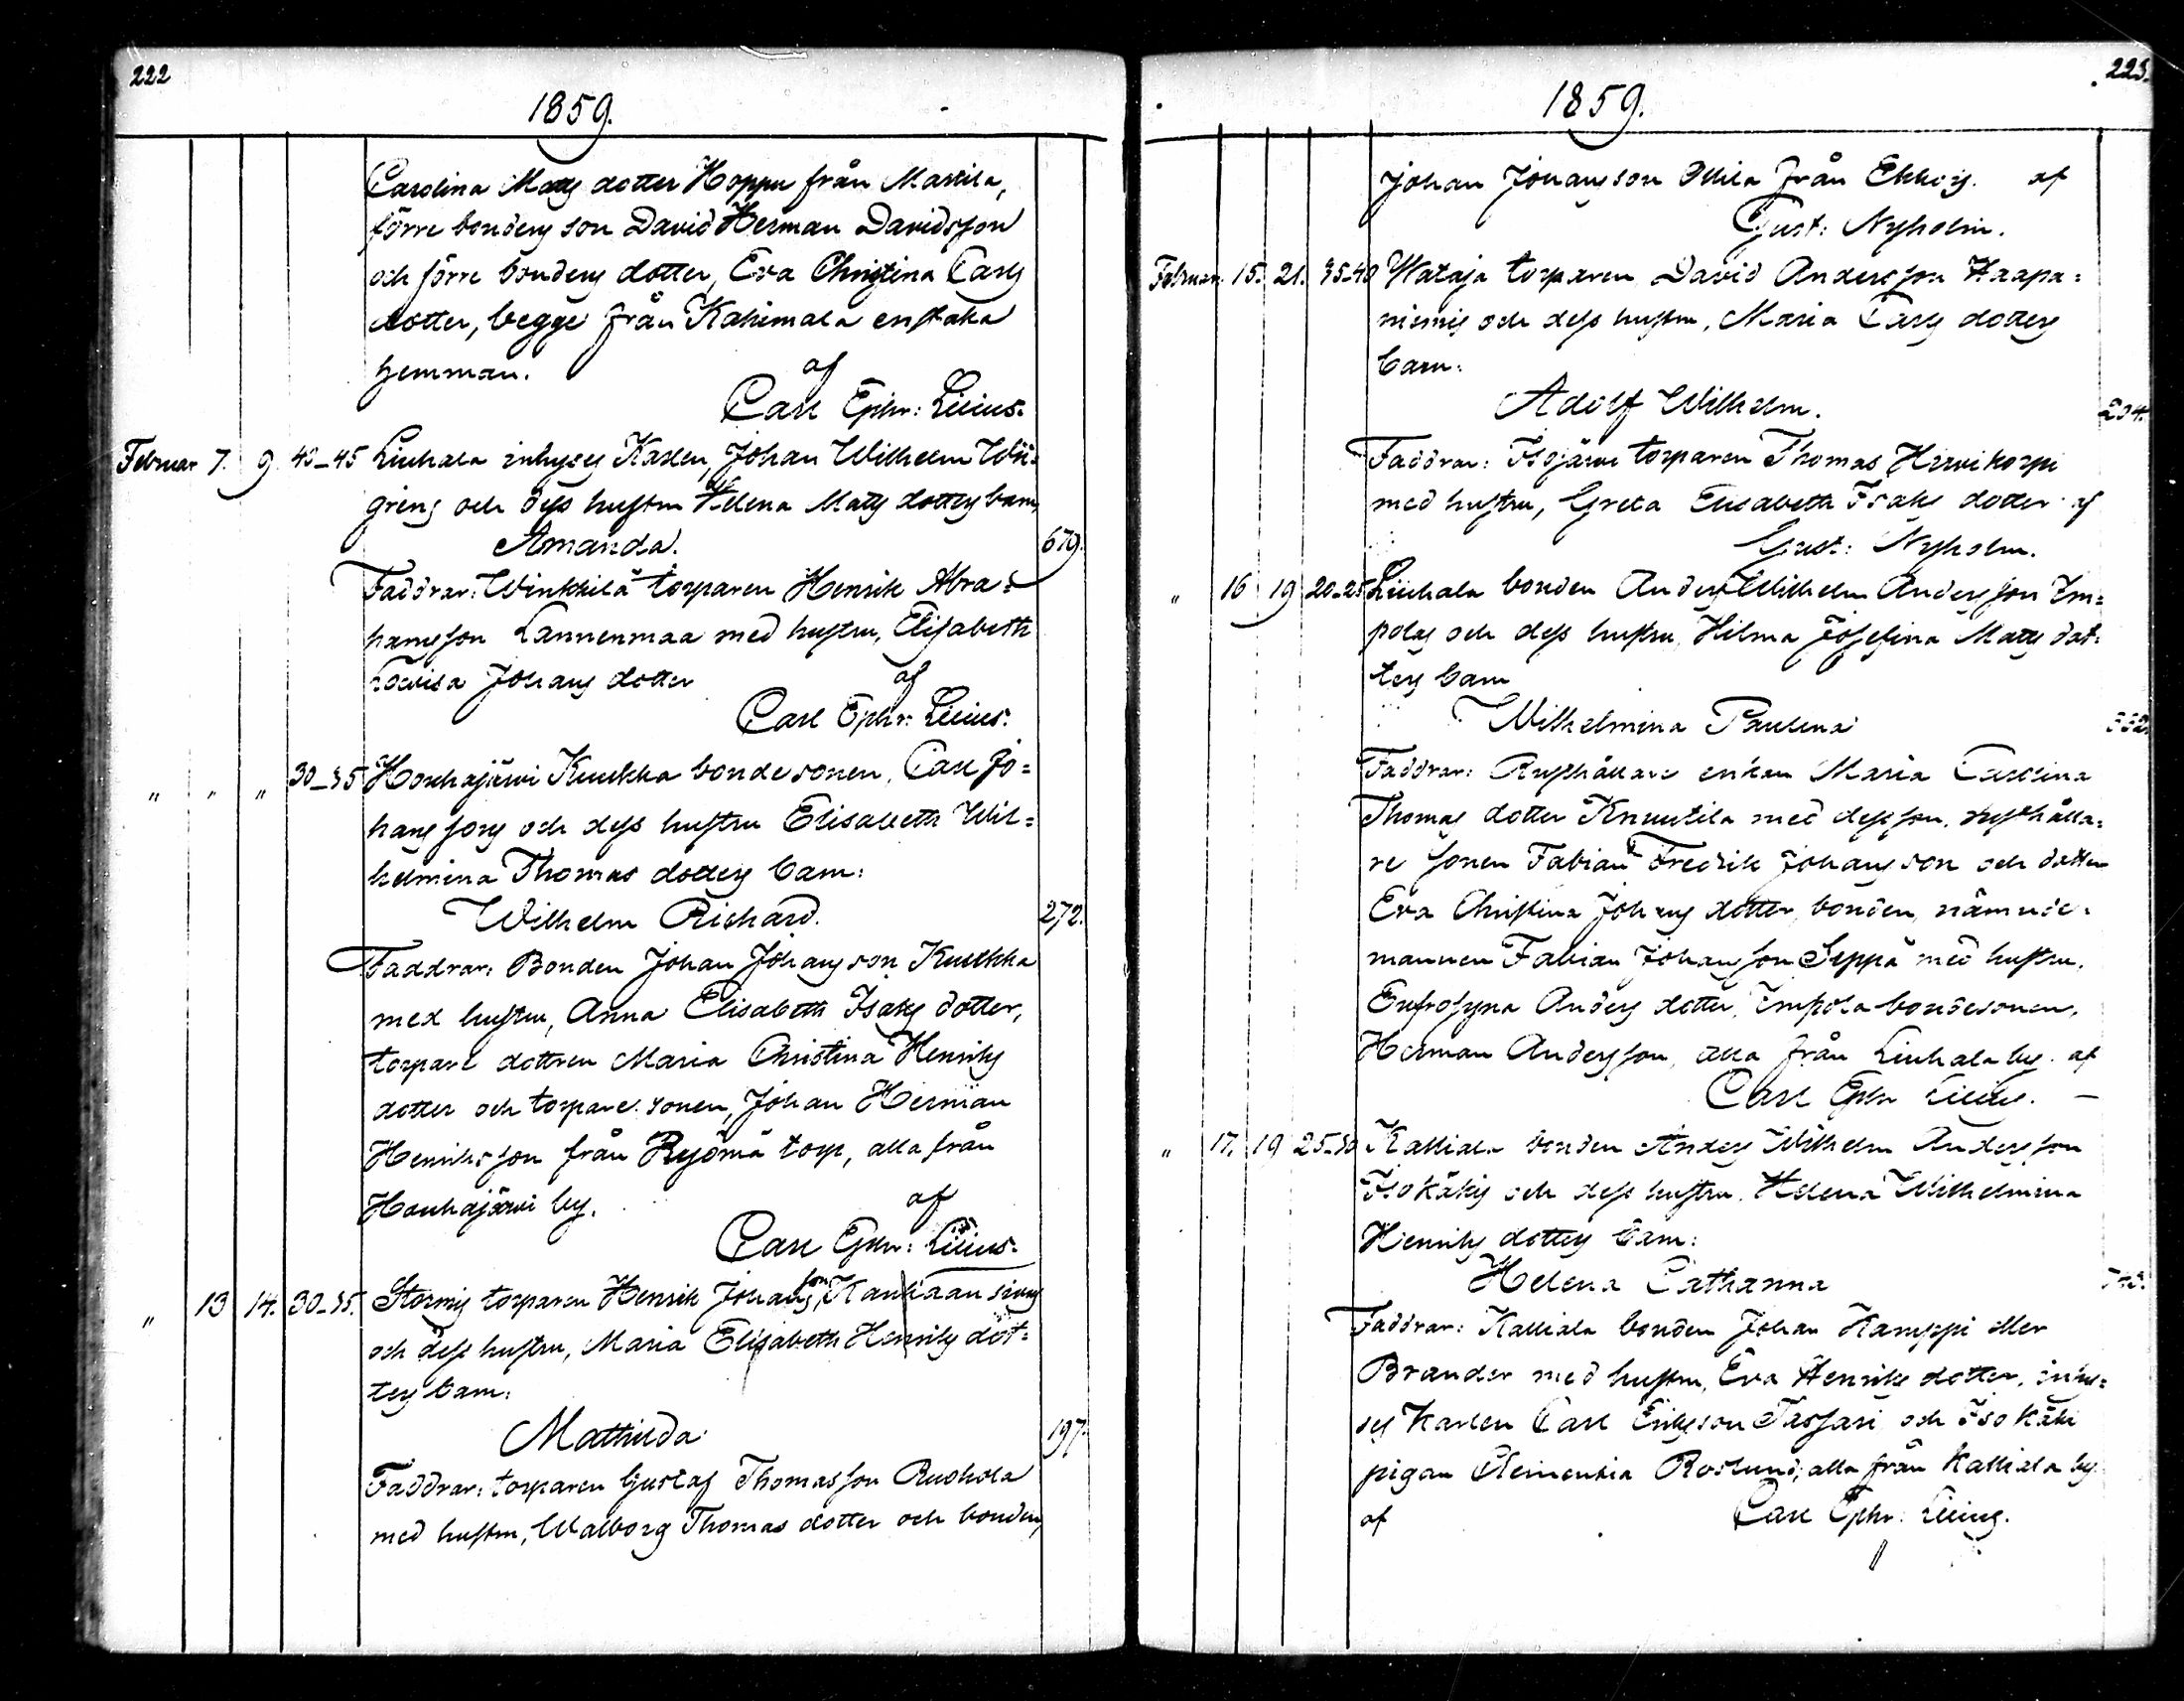 222
1859.
Carolina Mats dotter Hoppu från Mattila,
förre bondens son David Herman Davidsson
och förre bondens dotter, Eva Christina Carls
dotter, begge från Kahimala enstaka
hemman. af
Carl Ephr: Lilius.
Februar 7. 9. 40-45 Liuhala inhyses Karlen, Johan Wilhelm
grens och dess hustru Helena Mats dotters barn,
Amanda. 679.
Faddrar: Winkkilä torparen Henrik Abra=
hamsson Lannenmaa med hustru, Elisabeth
Lovisa Johans dotter af
Carl Ephr: Lilius.
" " " 30-35 Honkajärvi Kuukka bondesonen, Carl Jo=
hanssons och dess hustru Elisabeth Wil=
helmina Thomas dotters barn:
Wilhelm Richard. 272.
Faddrar: Bonden Johan Johansson Kuukka
med hustru, Anna Elisabeth Isaks dotter,
torpare dottren Maria Christina Henriks
dotter och torpare sonen, Johan Herman
Henriksson från Ryömä torp, alla från
Honkajärvi by. af
Carl Ephr: Lilius.
" 13 14. 30-35. Stormis torparen Henrik Johansson,
och dess hustru, Maria Elisabeth Henriks dot=
ters barn:
Mathilda 197.
Faddrar: torparen Gustaf Thomasson Ruohola
med hustru, Walborg Thomas dotter och bonden,
223.
1859.
Johan Johansson Ollila från af
Gust: Nyholm.
Februar. 15. 21. 35-40 Wataja torparen David Andersson Haapa=
niemis och dess hustru, Maria Carls dotters
barn:
Adolf Wilhelm. 204.
Faddrar: Isojärvi torparen Thomas Hirvikorpi
med hustru, Greta Elisabeth Isaks dotter af
Gust: Nyholm.
" 16 19 20-25 Liuhala bonden Anders Wilhelm Andersson Im=
polas och dess hustru, Hilma Josefina Mats dot=
ters barn
Wilhelmina Paulina
Faddrar: Rusthållare enkan Maria Carolina
Thomas dotter Knuutila med dess son, rusthålla=
re sonen Fabian Fredrik Johansson och dotter
Eva Christina Johans dotter, bonden, nämnde=
mannen Fabian Johansson Seppä med hustru,
Eufrosyna Anders dotter, Impola bondesonen,
Herman Andersson, alla från Liuhala by. af
Carl Ephr Lilius. —
" 17. 19 25-30 Kalliala bonden Anders Wilhelm Andersson
Isokäkis och dess hustru, Helena Wilhelmina
Henriks dotters barn:
Helena Catharina
Faddrar: Kalliala bonden Johan Kamppi eller
Brander med hustru, Eva Henriks dotter, inhy=
ses Karlen Carl Eriksson Tassari och Isokäki
pigan Clementia Roslund, alla från Kalliala by
af Carl Ephr: Lilius.